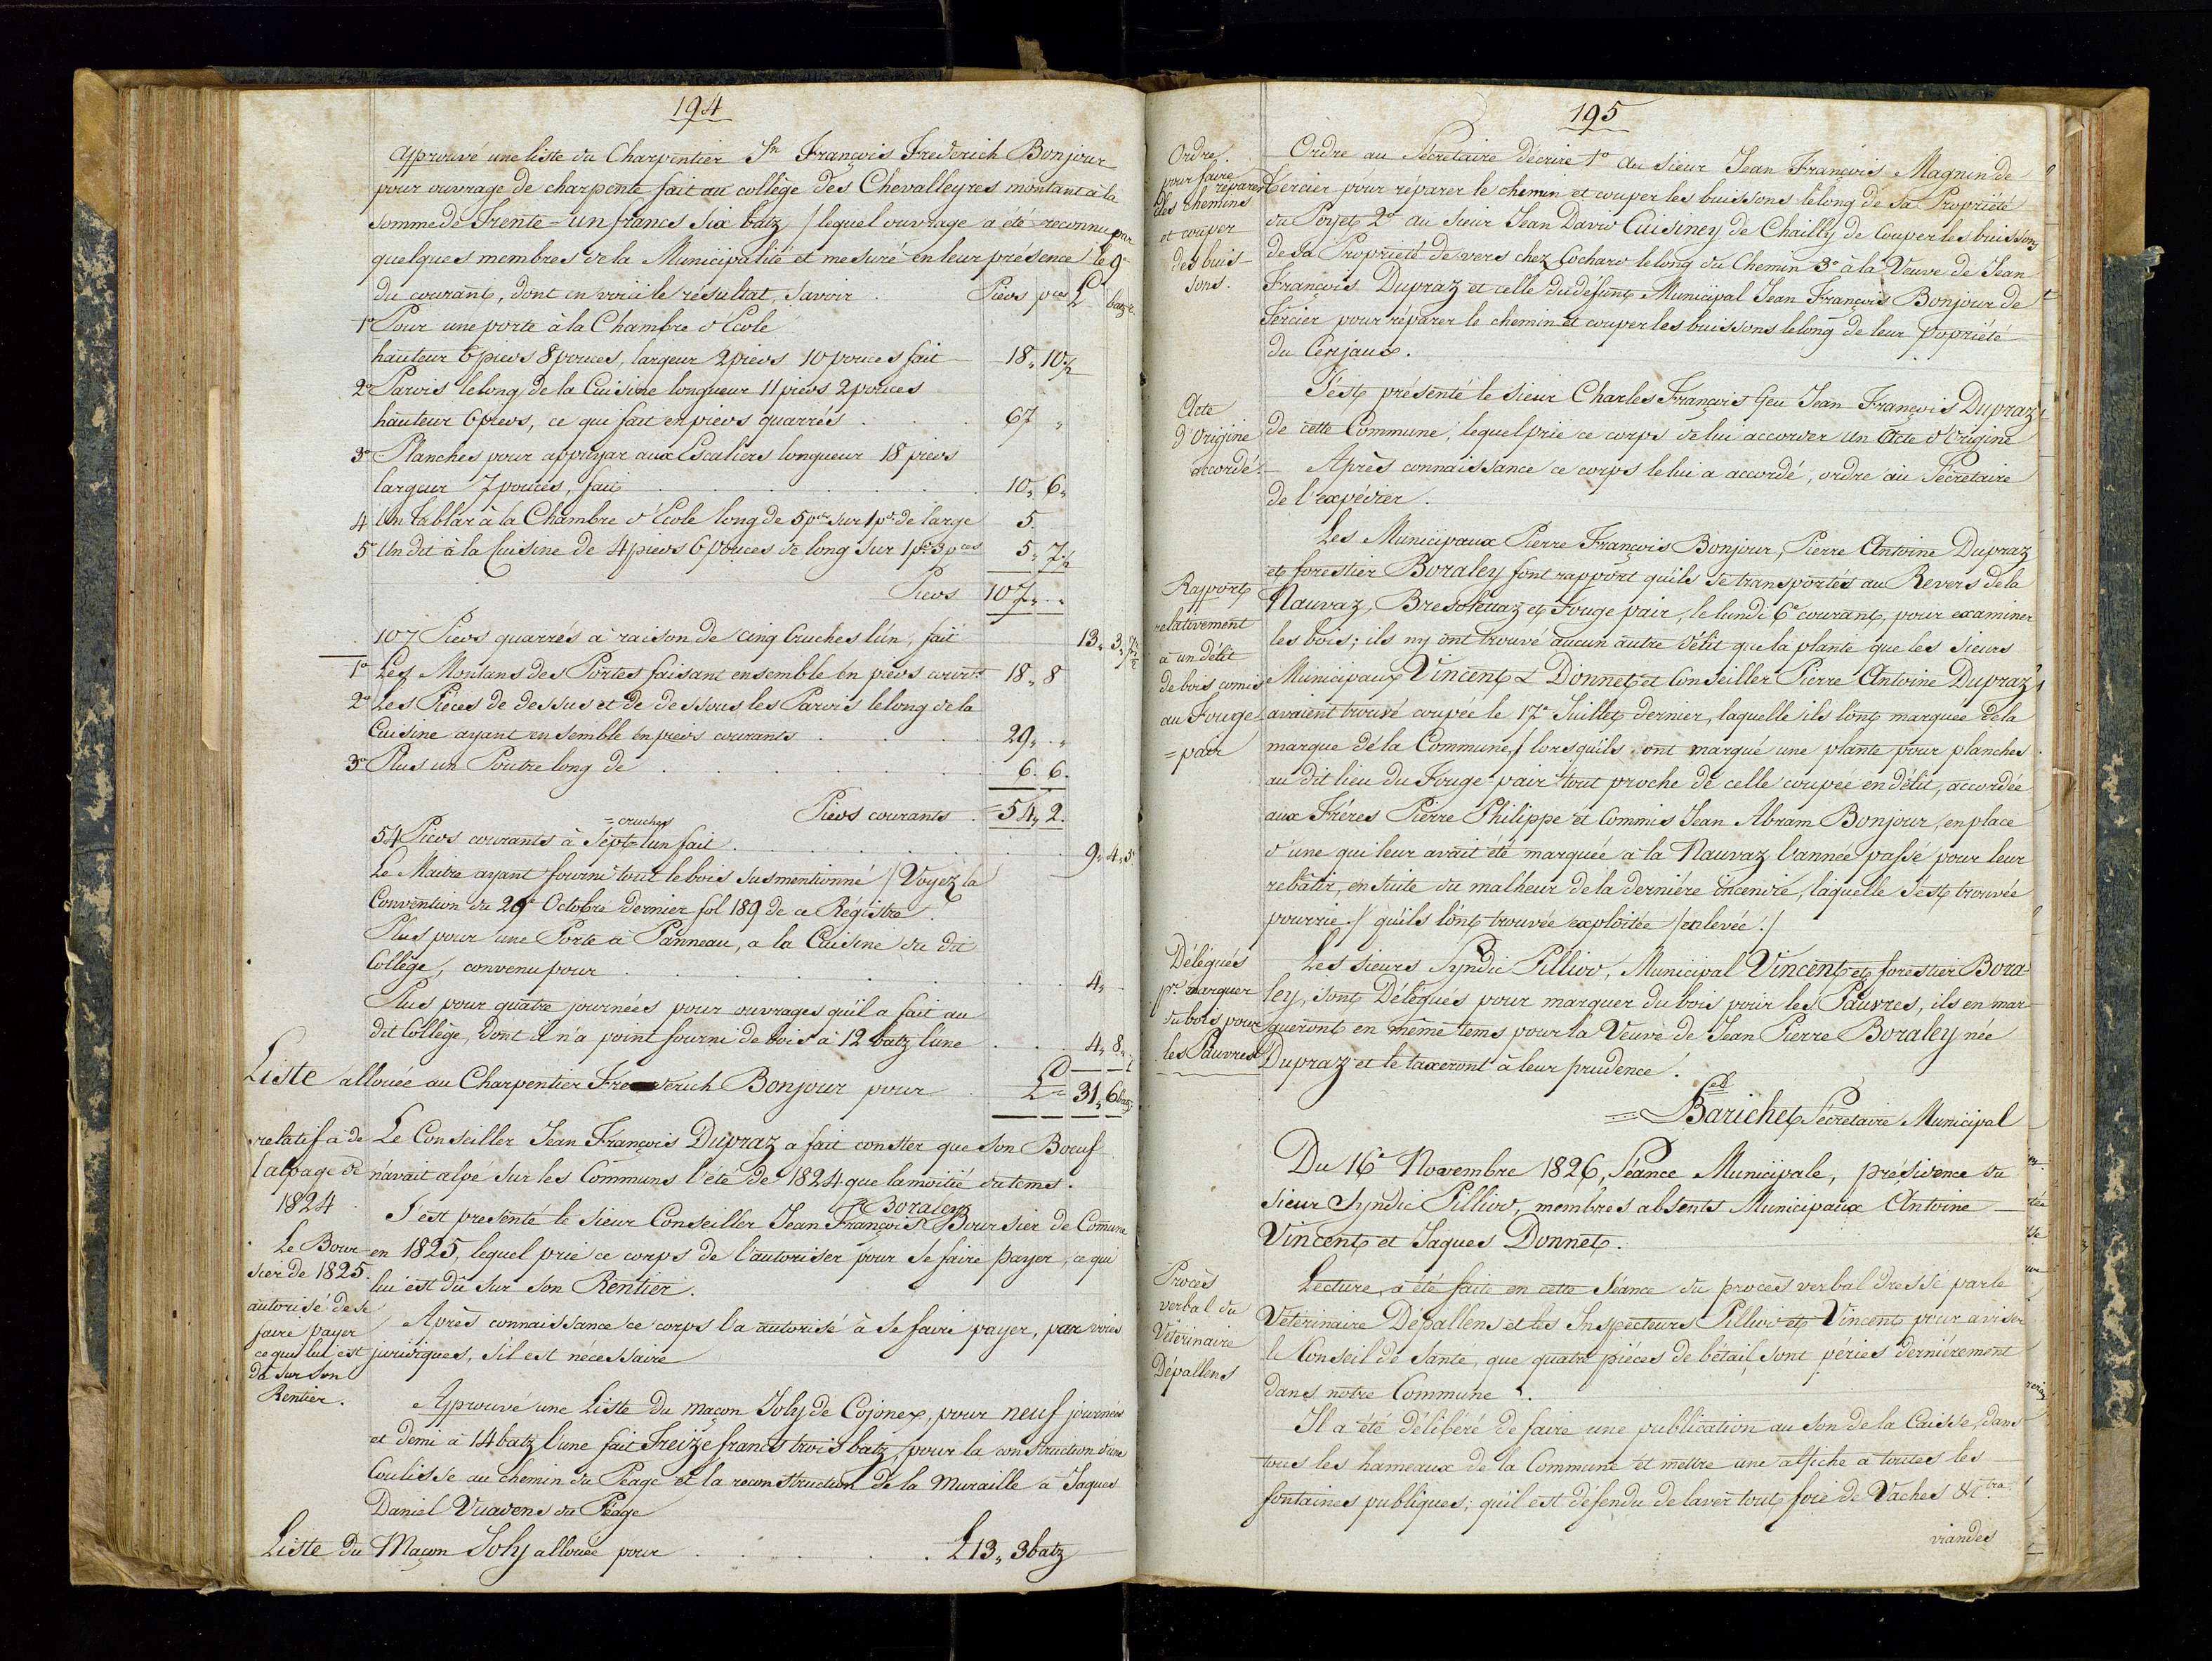 194
Approuvé une liste du Charpentier Sr. François Frederich Bonjour
pour ouvrage de charpente fait au collège des Chevalleyres montant à la
somme de Trente=un francs six batz / lequel ouvrage a été reconnu par
quelques membres de la Municipalité et mesuré en leur présence / le 9e
du courant, dont en voici le résultat, savoir . Pieds pces L batz
1° Pour une porte à la Chambre d'École
hauteur 6 pieds 8 pouces, largeur 2 pieds 10 pouces fait 18, 10 1/2
2° Parois le long de la Cuisine longueur 11 pieds 2 pouces
hauteur 6 pieds, ce qui fait en pieds quarrés . . . 67 "
3° Planches pour appuyar aux Escaliers longueur 18 pieds
largeur 7 pouces, fait . . . 10, 6,
4 Un Tablar à la Chambre d'Ecole long de 5 pds sur 1 pd. de large 5.
5° Un dit à la Cuisine de 4 pieds 6 pouces de long sur 1 pd 3 pces 5, 7 1/2
Pieds 107, . "
107 Pieds quarrés à raison de cinq Cruches l'un, fait 13, 3, 7 1/2
1° Les Montans des Portes faisant ensemble en pieds courts 18, 8
2° Les Pièces de dessus et de dessous les Parois le long de la
Cuisine ayant ensemble en pieds courants . . . 29, . "
3° Plus un Poutre long de . . . 6. 6.
Pieds courants . =54, 2.
=cruches
54 Pieds courants à Sept l'un fait . . . 9, 4, 5
Le Maitre ayant fourni tout le bois susmentionné / Voyez la
Convention du 29e Octobre dernier fol 189 de ce Régistre.
Plus pour une Porte à Panneau, a la Cuisine du dit
Collège, convenu pour . . . 4,
Plus pour quatre journées pour ouvrages qu'il a fait au
dit Collège, dont il n'a point fourni de bois à 12 batz l'une . . . 4, 8,
Liste allouée au Charpentier Frederich Bonjour pour L 31, 6 batz
relatif à de
l'alpage de
1824
Le Conseiller Jean François Dupraz a fait conster que son Boeuf
n'avait alpé sur les Communs l'été de 1824 que la moitié du tems.
Boraley
S'est presenté le sieur Conseiller Jean François Boursier de Comune
en 1825, lequel prie ce corps de l'autoriser pour se faire payer, ce qui
lui est dû sur son Rentier.
Le Bour
sier de 1825.
autorisé de se
faire payer
ce qui lui est
dû sur son
Rentier.
Après connaissance ce corps l'a autorisé à se faire payer, par voies
juridiques, s'il est nécessaire
Approuvé une Liste du maçon Joly de Cojonex, pour neuf journées
et demi à 14 batz l'une fait Treize francs trois batz, pour la construction d'une
Coulisse au chemin du Péage et la reconstruction de la Muraille à Jaques
Daniel Vuadens du Péage
Liste du Maçon Joly allouée pour . . . L 13, 3 batz
195
Ordre
pour faire
réparer
des chemins
et couper
des buis-
sons.
Ordre au Sécretaire d'écrire 1° au sieur Jean François Magnin de
Tercier pour réparer le chemin et couper les buissons le long de sa Propriété
du Poyet 2° au sieur Jean David Cuisiney de Chailly de Couper les buissons
de sa Propriété devers chez Cochard le long du Chemin 3° à la Veuve de Jean
François Dupraz et celle du défunt Municipal Jean François Bonjour de
Tercier pour réparer le chemin et couper les buissons le long de leur popriété
du Cerijaux.
Acte
d'Origine
accordé.
S'est présenté le sieur Charles François feu Jean François Dupraz
de cette Commune, lequel prie ce corps de lui accorder un Acte d'Origine
Après connaissance ce corps le lui a accordé, ordre au Sécretaire
de l'expédier.
Rapport
relativement
à un délit
de bois comis
au Fouge
=pair
Les Municipaux Pierre François Bonjour, Pierre Antoine Dupraz
et forestier Boraley font rapport qu'ils se transportés au Revers de la
Nauvaz, Bresolettaz et Fouge pair, le lundi 6e courant, pour examiner
les bois; ils ny ont trouvé aucun autre délit que la plante que les sieurs
Municipaux Vincent & Donnet et Conseiller Pierre Antoine Dupraz
avaient trouvé coupée le 17e Juillet dernier, laquelle ils l'ont marquée de la
marque de la Commune, / lorsqu'ils ont marqué une plante pour planches
au dit lieu du Fouge-pair tout proche de celle coupée en délit, accordée
aux Frères Pierre Philippe et Commis Jean Abram Bonjour, en place
d'une qui leur avait été marquée à la Nauvaz l'année passé pour leur
rebâtir, ensuite du malheur de la dernière incendie, laquelle s'est trouvée
pourrie / qu'ils l'ont trouvée exploitée / enlevée. /
Délégués
pr. marquer
du bois pour
les Pauvres
Les sieurs Syndic Pilliod, Municipal Vincent et forestier Bora-
ley, sont Délégués pour marquer du bois pour les Pauvres, ils en mar-
queront en même tems pour la Veuve de Jean Pierre Boraley née
Dupraz et le taxeront à leur prudence.
Barichet Sécretaire Municipal
Du 16e Novembre 1826, Séance Municipale, présidence du
sieur Syndic Pilliod, membres absents Municipaux Antoine
Vincent et Jaques Donnet.
Procès
verbal du
Vétérinaire
Dépallens
Lecture a été faite en cette Séance du procès verbal dressé par le
Vétérinaire Dépallens et les Inspecteurs Pilliod et Vincent pour aviser
le Conseil de Santé, que quatre pièces de bétail sont péries dernièrement
dans notre Commune.
Il a été délibéré de faire une publication au son de la Caisse, dans
tous les hameaux de la Commune et mettre une affiche à toutes les
fontaines publiques; qu'il est défendu de laver tout foie de Vaches &ctra
viandes